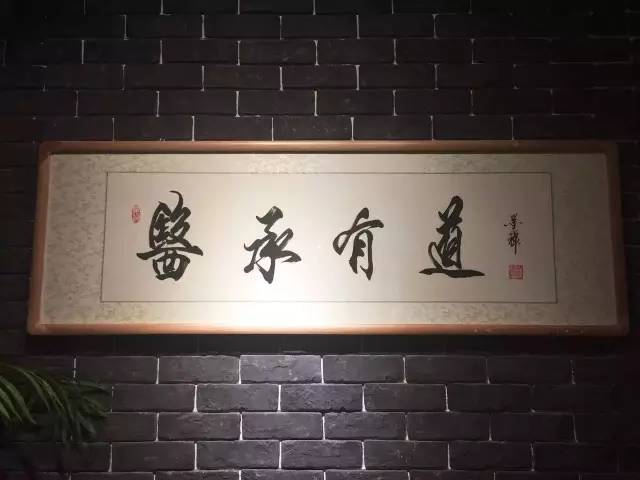 醫承有道